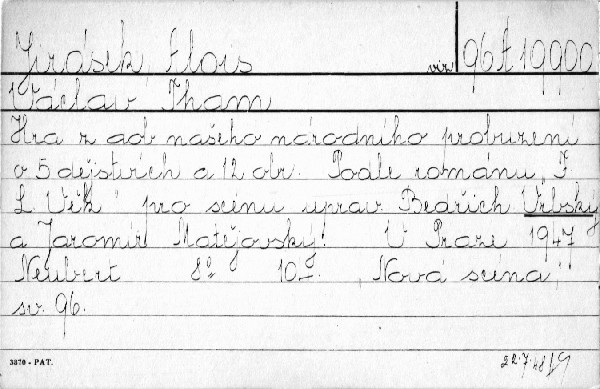 Jirásek, Alois viz 96 A 19900
Václav Tham
Hra z dob našeho národního probuzení
o 5 dějstvích a 12 obr. Podle románu „F.
L. Věk" pro scénu uprav. Bedřich Vrbský
a Jaromír Matějovský. V Praze 1947
Neubert 8° 10.- „Nová scéna",
sv. 96.
3870 - PAT. 22.7.48